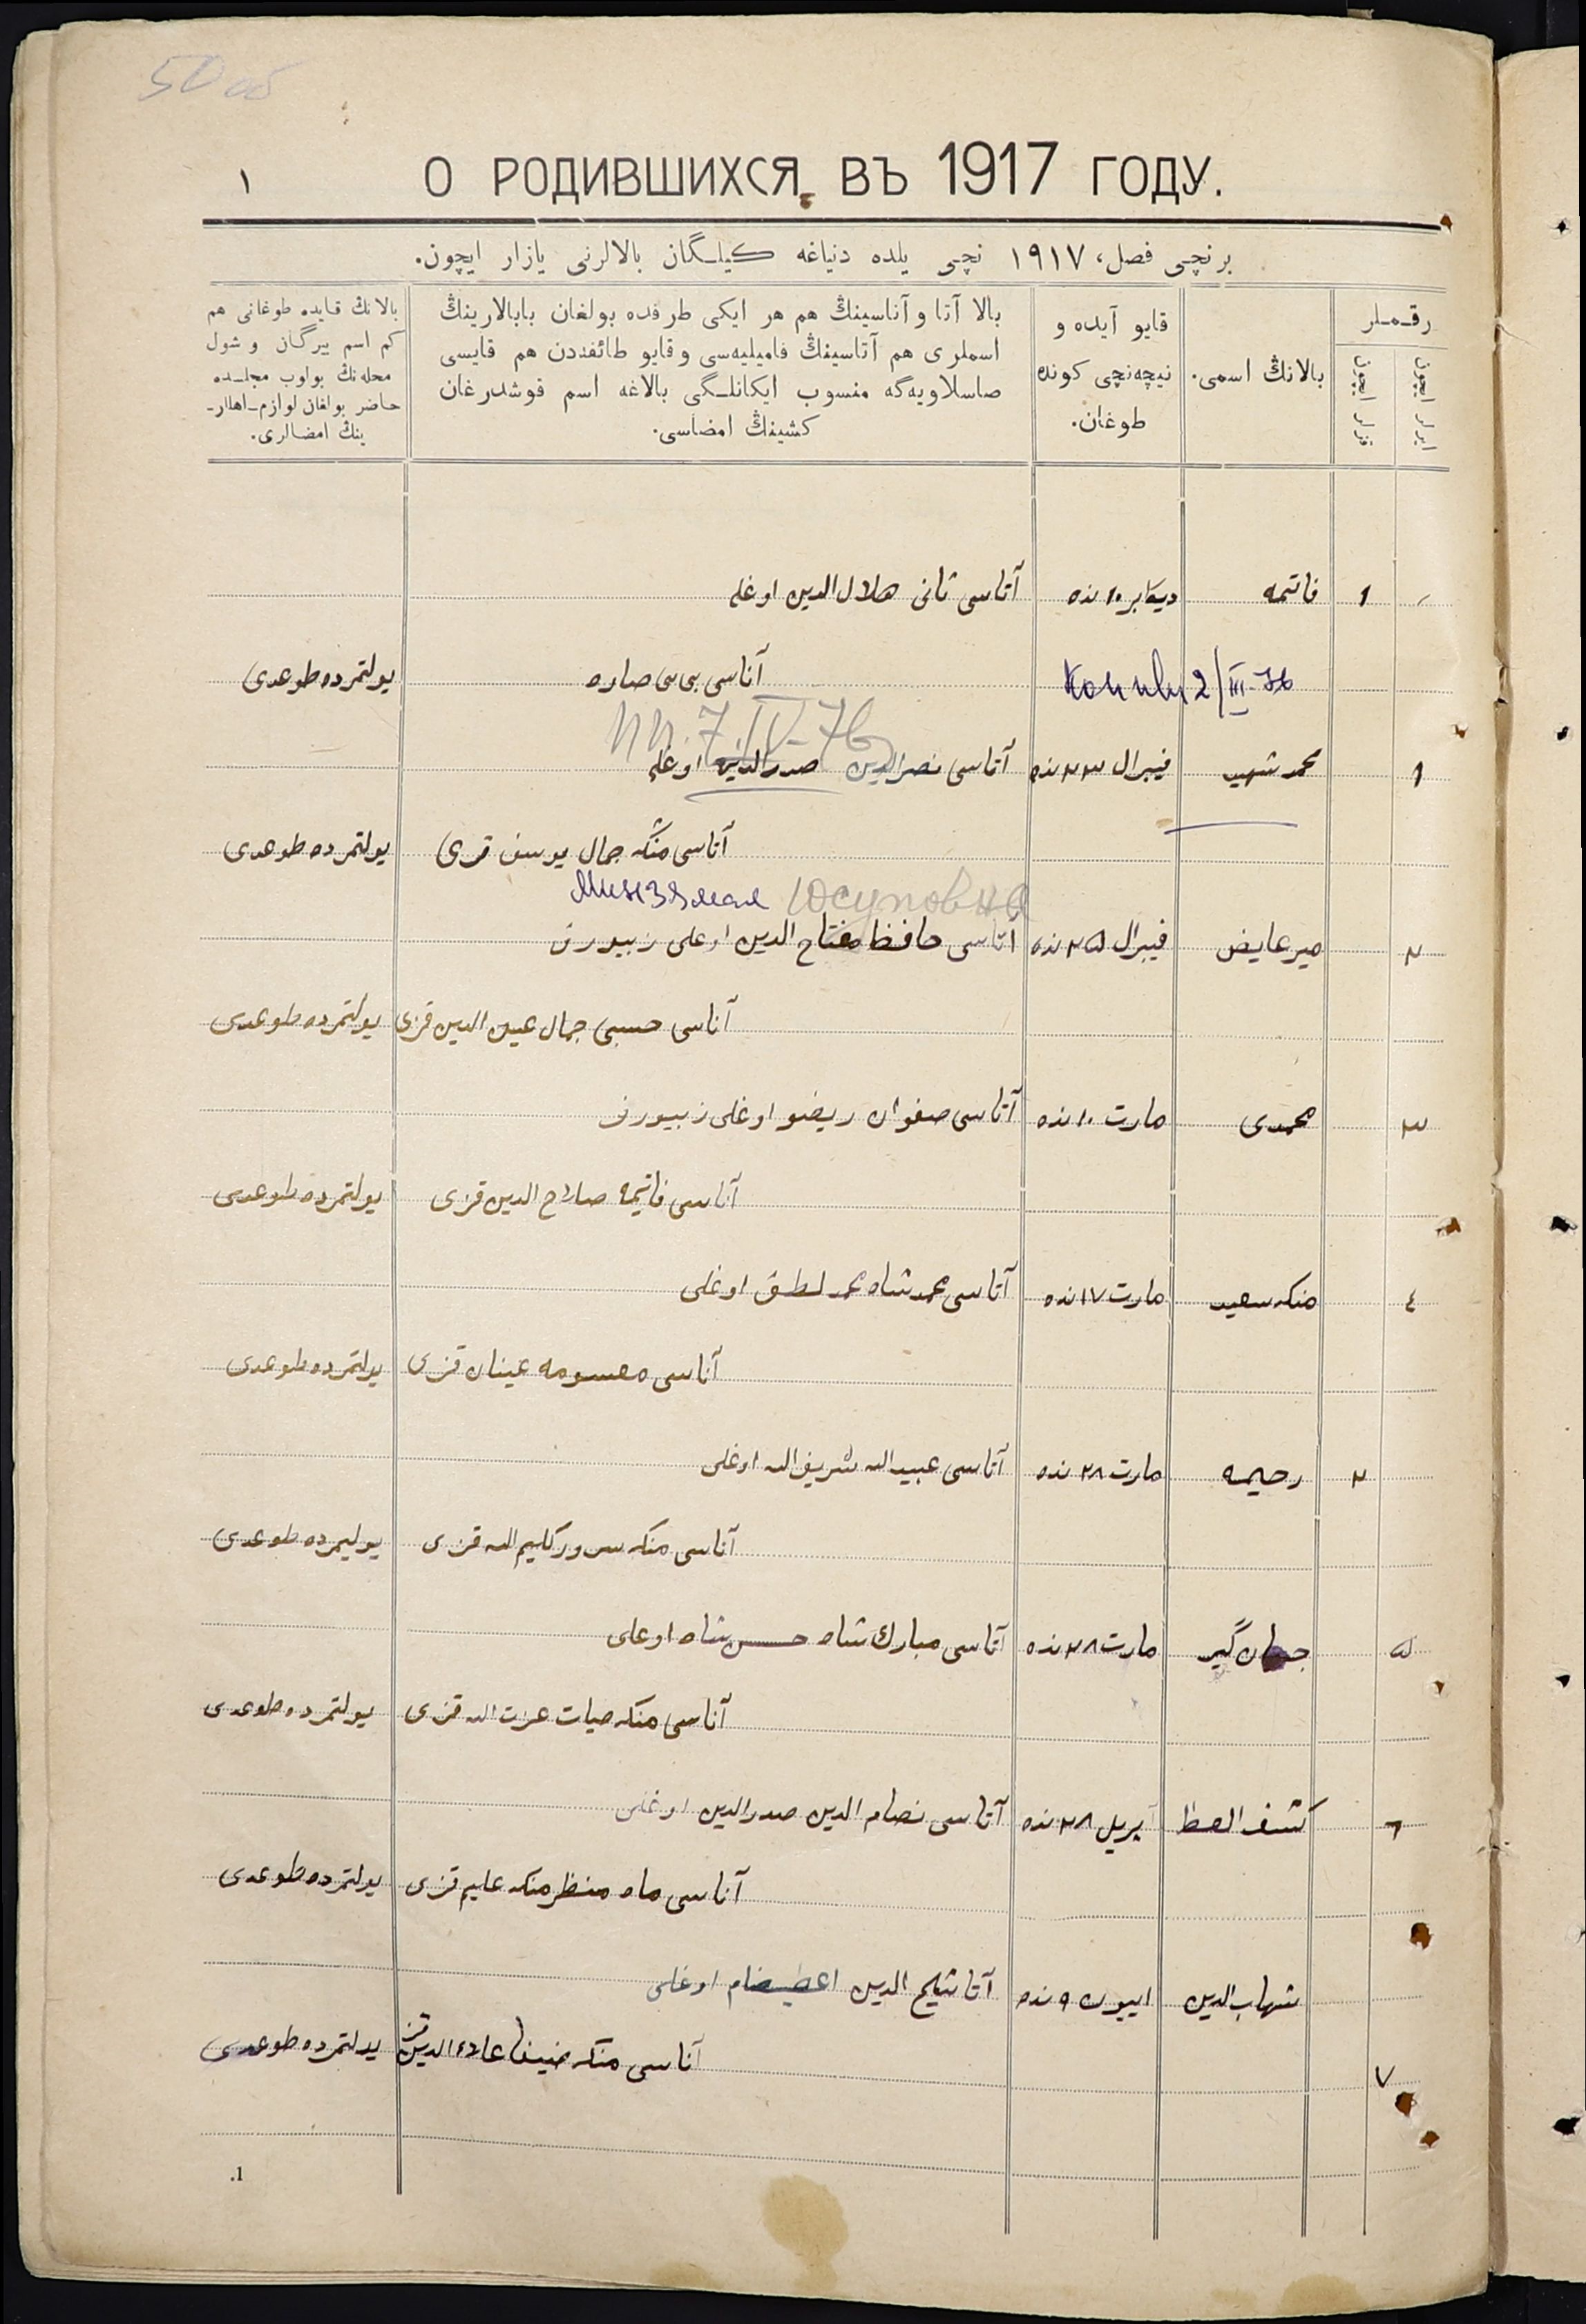 50 об
О РОДИВШИХСЯ ВЪ 1917 ГОДУ.
١
برنچی فصل، ١٩١٧ نچی یلده دنیاغه کیلگان بالالرنی یازار ایچون.
رقملر
ایرلر ایچون
قزلر ایچون
بالانڭ اسمی.
قایو آیده و
نیچه‌نچی کونده
طوغان.
بالا آتا و آناسینڭ هم هر ایکی طرفده بولغان بابالارینڭ
اسملری هم آتاسینڭ فامیلیه‌سی و قایو طائفه‌دن هم قایسی
صاسلاویه‌گه منسوب ایکانلگی بالاغه اسم قوشدرغان
کشینڭ امضاسی.
بالانڭ قایده طوغانی هم
کم اسم بیرگان و شول
محله‌نڭ بولوب مجلسده
حاضر بولغان لوازم اهللر-
ینڭ امضالری.
1 فاتمه دیکابر ١٠ نده آتاسی ثانی هلال الدین اوغلی
آناسی بی بی صاره یولتمرده طوعدی
2/III-76
пп. 7.IV-76
١ محمد شهید فیبرال ٢٣ نده آتاسی نصرالدین صدرالدین اوغلی
آناسی منکه جمال یوسف قزی یولتمرده طوعدی
Минзямал Юсуповна
٢ میرعایض فیبرال ٢٥ نده آتاسی حافظ مفتاح الدین اوغلی زبیروف
آناسی حسبی جمال عین الدین قزی یولتمرده طوعدی
٣ محمدی مارت ١٠ نده آتاسی صفوان ریضو اوغلی زبیروف
آناسی فاتیمه صلاح الدین قزی یولتمرده طوعدی
٤ منکه سعید مارت ١٧ نده آتاسی محمد شاه محمد لطف اوغلی
آناسی معسومه عینان قزی یولتمرده طوعدی
٢ رحیمه مارت ٢٨ نده آتاسی عبیدالله شریف الله اوغلی
آناسی منکه سرور کلیم الله قزی یولیمرده طوعدی
٥ جهان گیر مارت ٢٨ نده آتاسی مبارك شاه حسن شاه اوعلی
آناسی منکه حیات عزت الله قزی یولتمرده طوعدی
٦ کشف العطا اپریل ٢٨ نده آتاسی نصام الدین صدرالدین اوغلی
آناسی ماه منظر منکه علیم قزی یولتمرده طوعدی
شهاب الدین اییون ٩ نده آتا شیح الدین اوغلی
٧ آناسی منکه یولتمرده طوعدی
1.